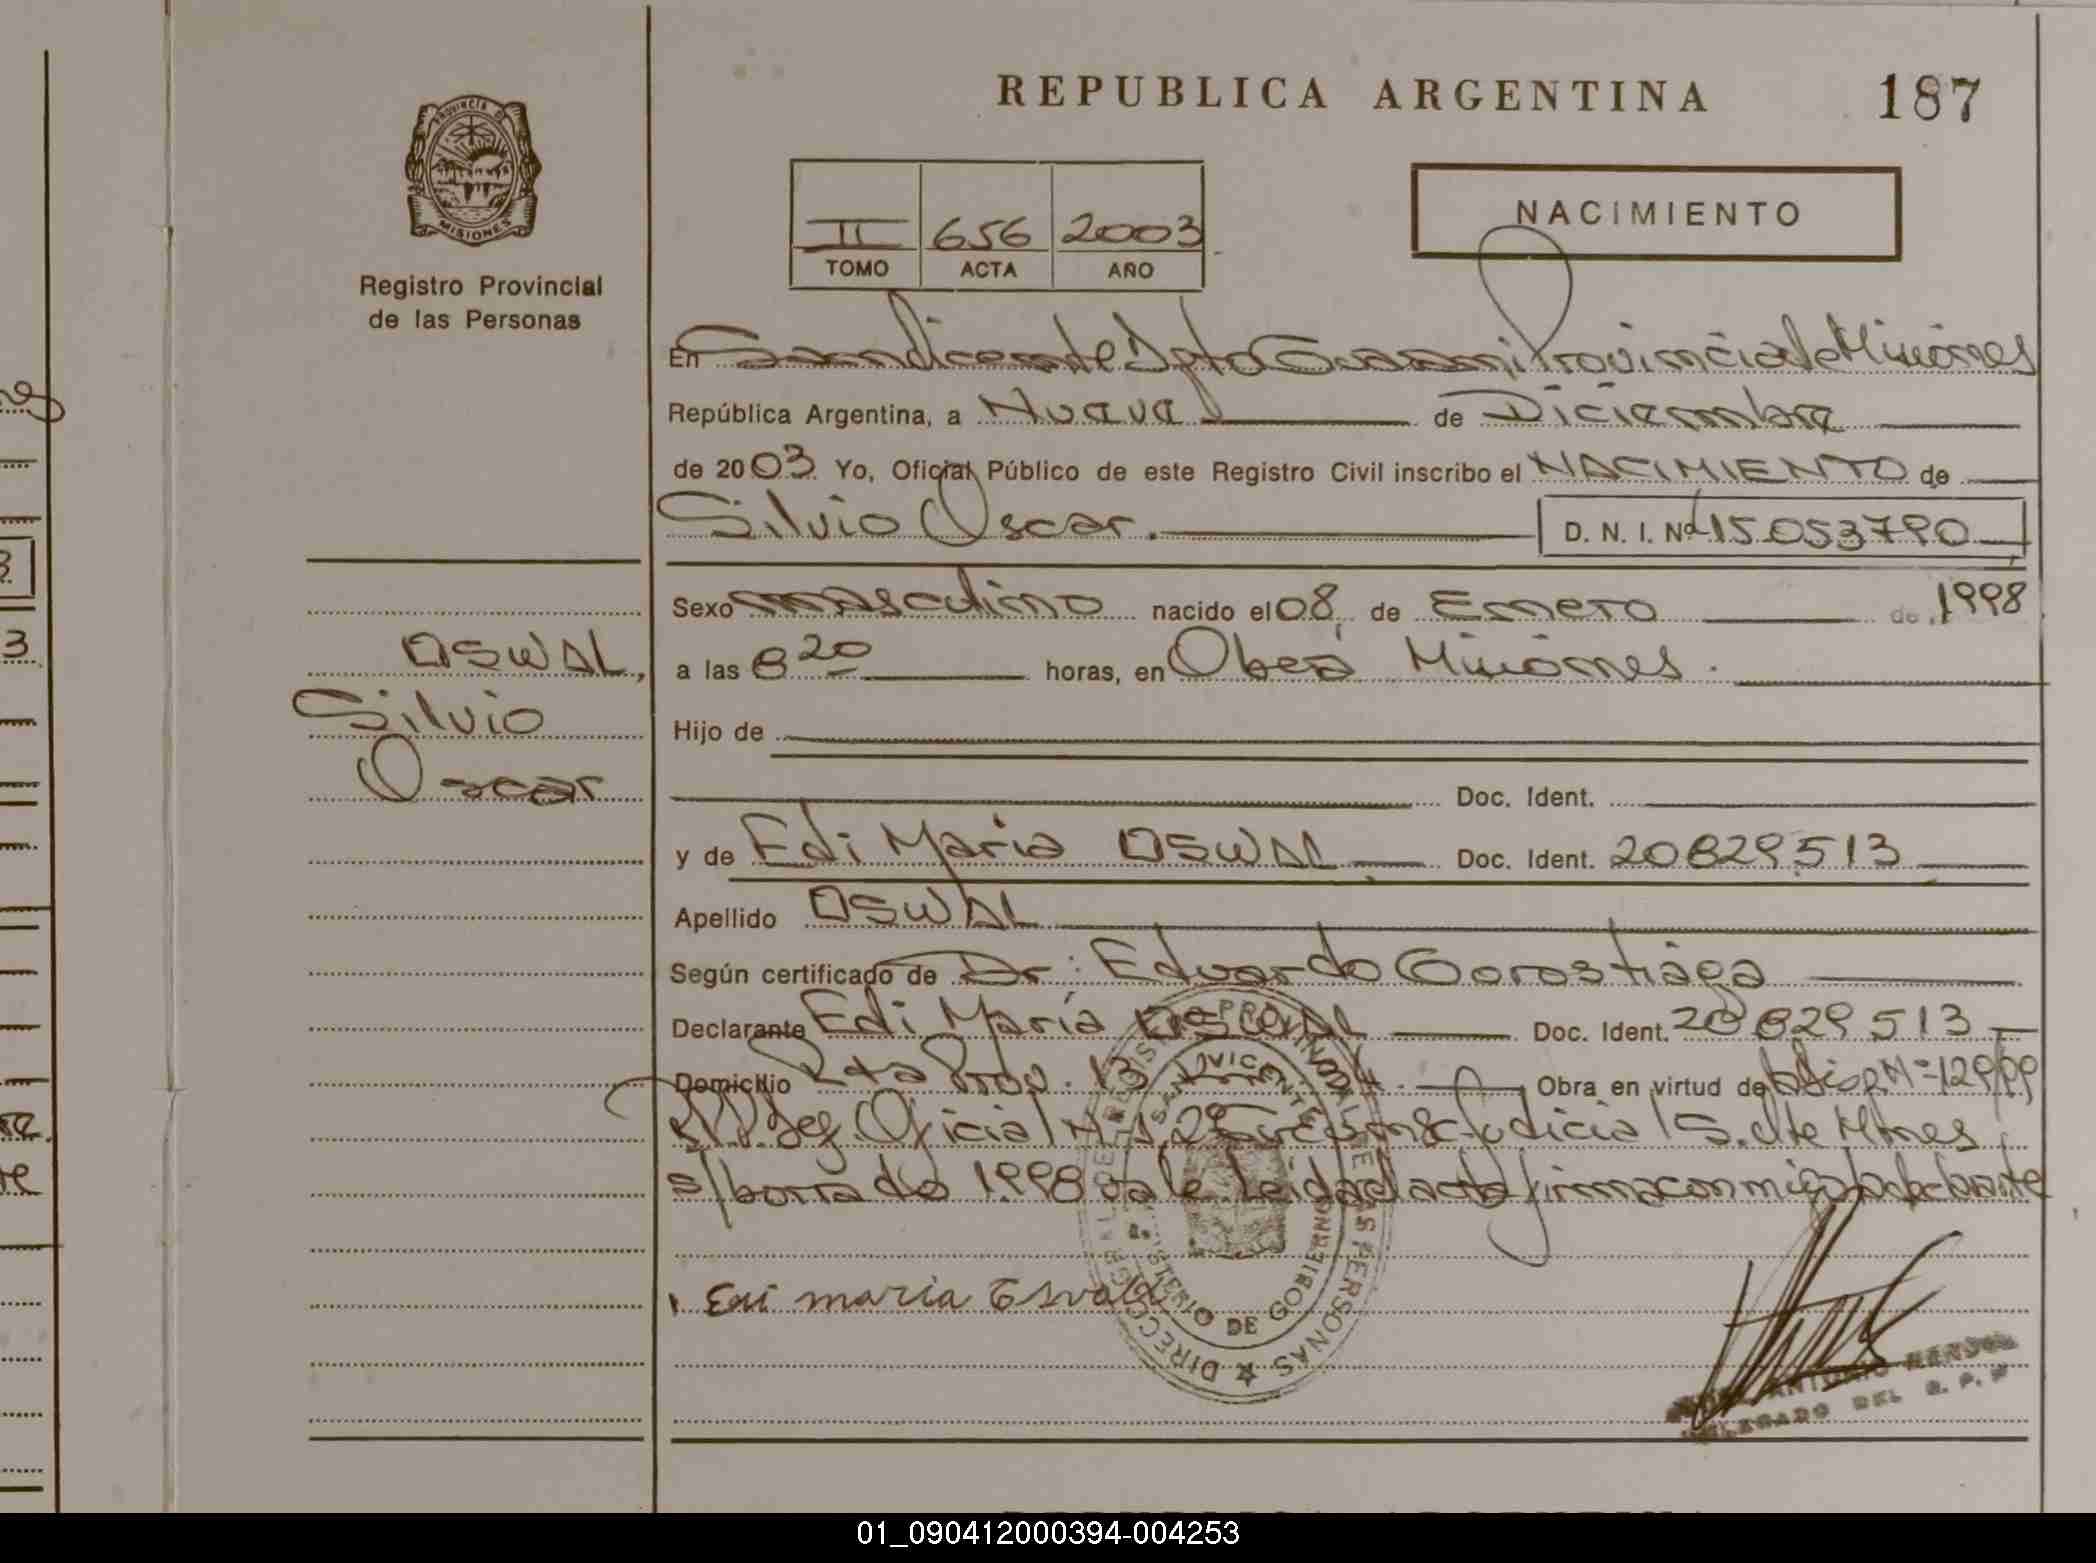 REPUBLICA ARGENTINA 187
PROVINCIA DE
MISIONES
Registro Provincial
de las Personas
II 656 2003
TOMO ACTA AÑO
NACIMIENTO
En San Vicente Dpto Guarani Provincia de Misiones
República Argentina, a Nueve de Diciembre
de 2003 Yo, Oficial Público de este Registro Civil inscribo el NACIMIENTO de
Silvio Oscar. D. N. I. Nº 15.053.790
Sexo masculino nacido el 08 de Enero de 1998
OSWAL, a las 8 20 horas, en Oberá Misiones.
Silvio
Hijo de
Oscar
Doc. Ident.
y de Edi Maria OSWAL Doc. Ident. 20829513
Apellido OSWAL
Según certificado de Dr: Eduardo Gorostiaga
Declarante Edi María OSWAL Doc. Ident. 20829513
Domicilio Rta Prov. 13 Obra en virtud de
Oficial Judicial S. Vte Mnes
s/borrado 1998 vale Leida el acta firma conmigo la declarante
Edi maria
DIRECCION GRAL DE REGISTRO PROVINCIAL DE LAS PERSONAS
SAN VICENTE
MINISTERIO DE GOBIERNO
ANTONIO
DELEGADO DEL R. P. P
01_090412000394-004253